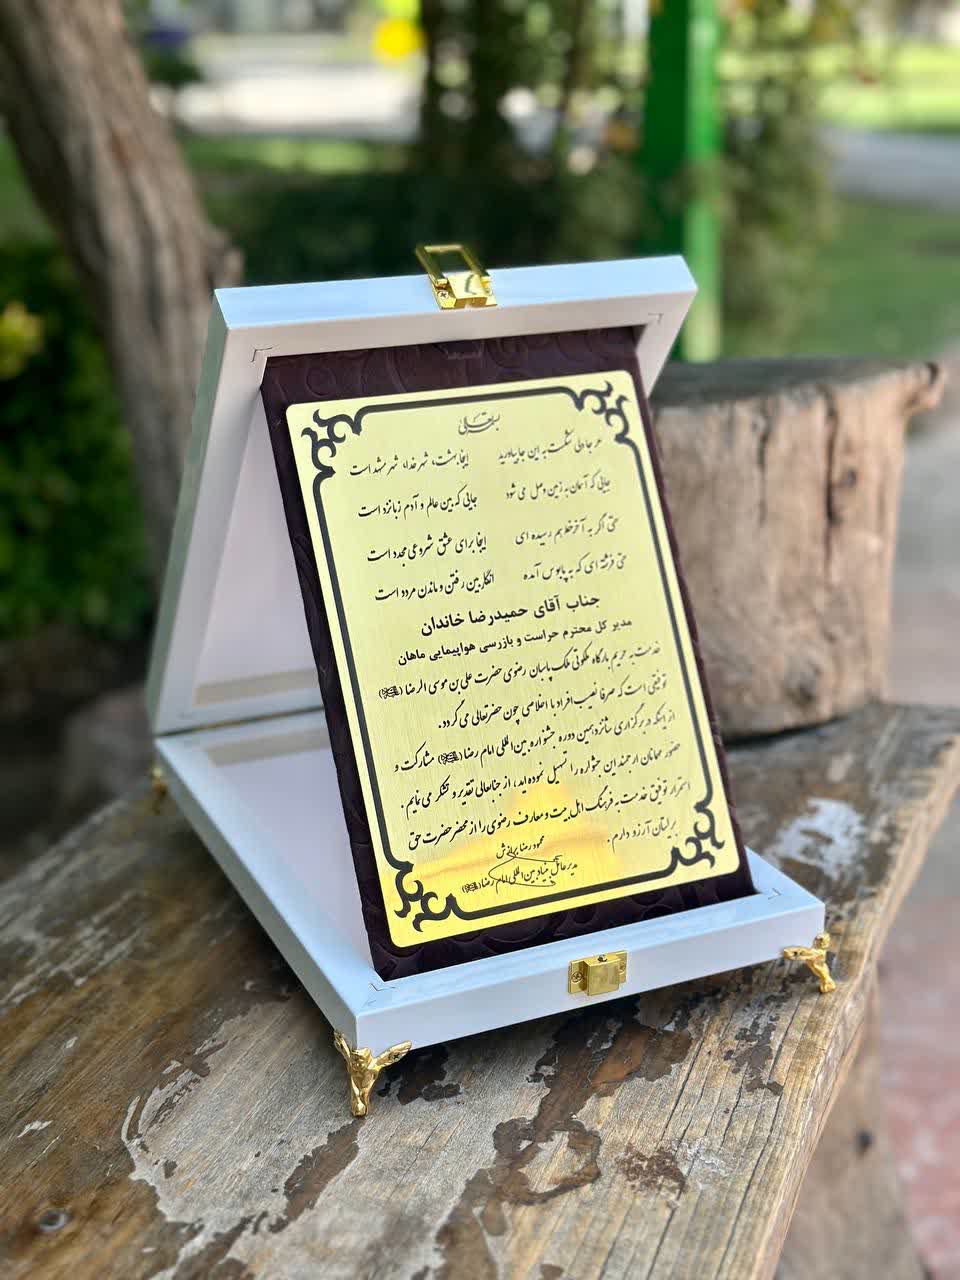 بسمه تعالی
هر جا دلی شکست به این جا بیاورید اینجا بهشت، شهر خدا، شهر مشهد است
جایی که آسمان به زمین وصل می شود جایی که بین عالم و آدم زبانزد است
حتی اگر به آخر خط هم رسیده ای اینجا برای عشق شروعی مجدد است
حتی فرشته ای که به پابوس آمده انگار بین رفتن و ماندن مردد است
جناب آقای حمیدرضا خاندان
مدیر کل محترم حراست و بازرسی هواپیمایی ماهان
خدمت به حریم بارگاه ملکوتی ملک پاسبان رضوی حضرت علی بن موسی الرضا
توفیقی است که صرفا نصیب افراد با اخلاصی چون حضرتعالی می گردد.
از اینکه در برگزاری شانزدهمین دوره جشنواره بین المللی امام رضا مشارکت و
حضور مهمانان ارجمند این جشنواره را تسهیل نموده اید، از جنابعالی تقدیر و تشکر می نمایم.
استمرار توفیق خدمت به فرهنگ اهل بیت و معارف رضوی را از محضر حضرت حق
برایتان آرزو دارم.
محمود رضا برازش
مدیرعامل بنیاد بین المللی امام رضا